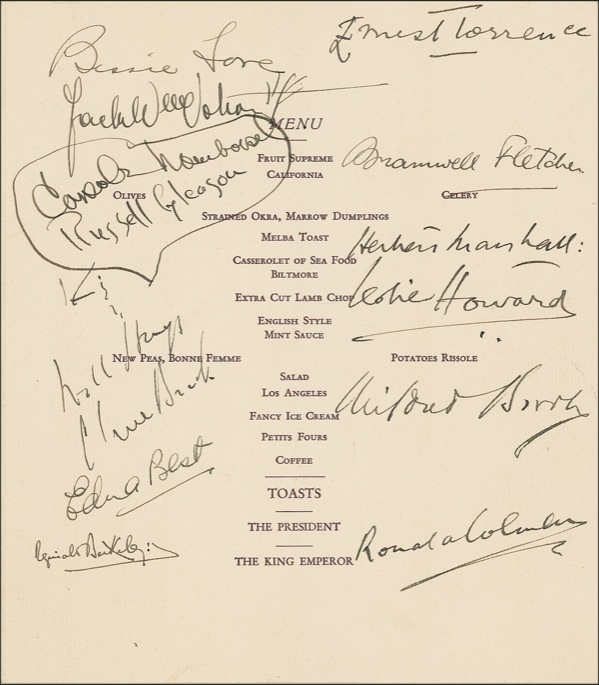 Ernest Torrence
Bessie Love
MENU
FRUIT SUPREME
CALIFORNIA
Bramwell Fletcher.
Carole Lombard
Russell Gleason
OLIVES
CELERY
STRAINED OKRA, MARROW DUMPLINGS
MELBA TOAST
Herbert Marshall:
CASSEROLET OF SEA FOOD
BILTMORE
EXTRA CUT LAMB CHOP
Leslie Howard
ENGLISH STYLE
MINT SAUCE
NEW PEAS, BONNE FEMME
POTATOES RISSOLE
SALAD
LOS ANGELES
Clive Brook
FANCY ICE CREAM
PETITS FOURS
COFFEE
Edna Best
TOASTS
THE PRESIDENT
Ronald Colman
THE KING EMPEROR